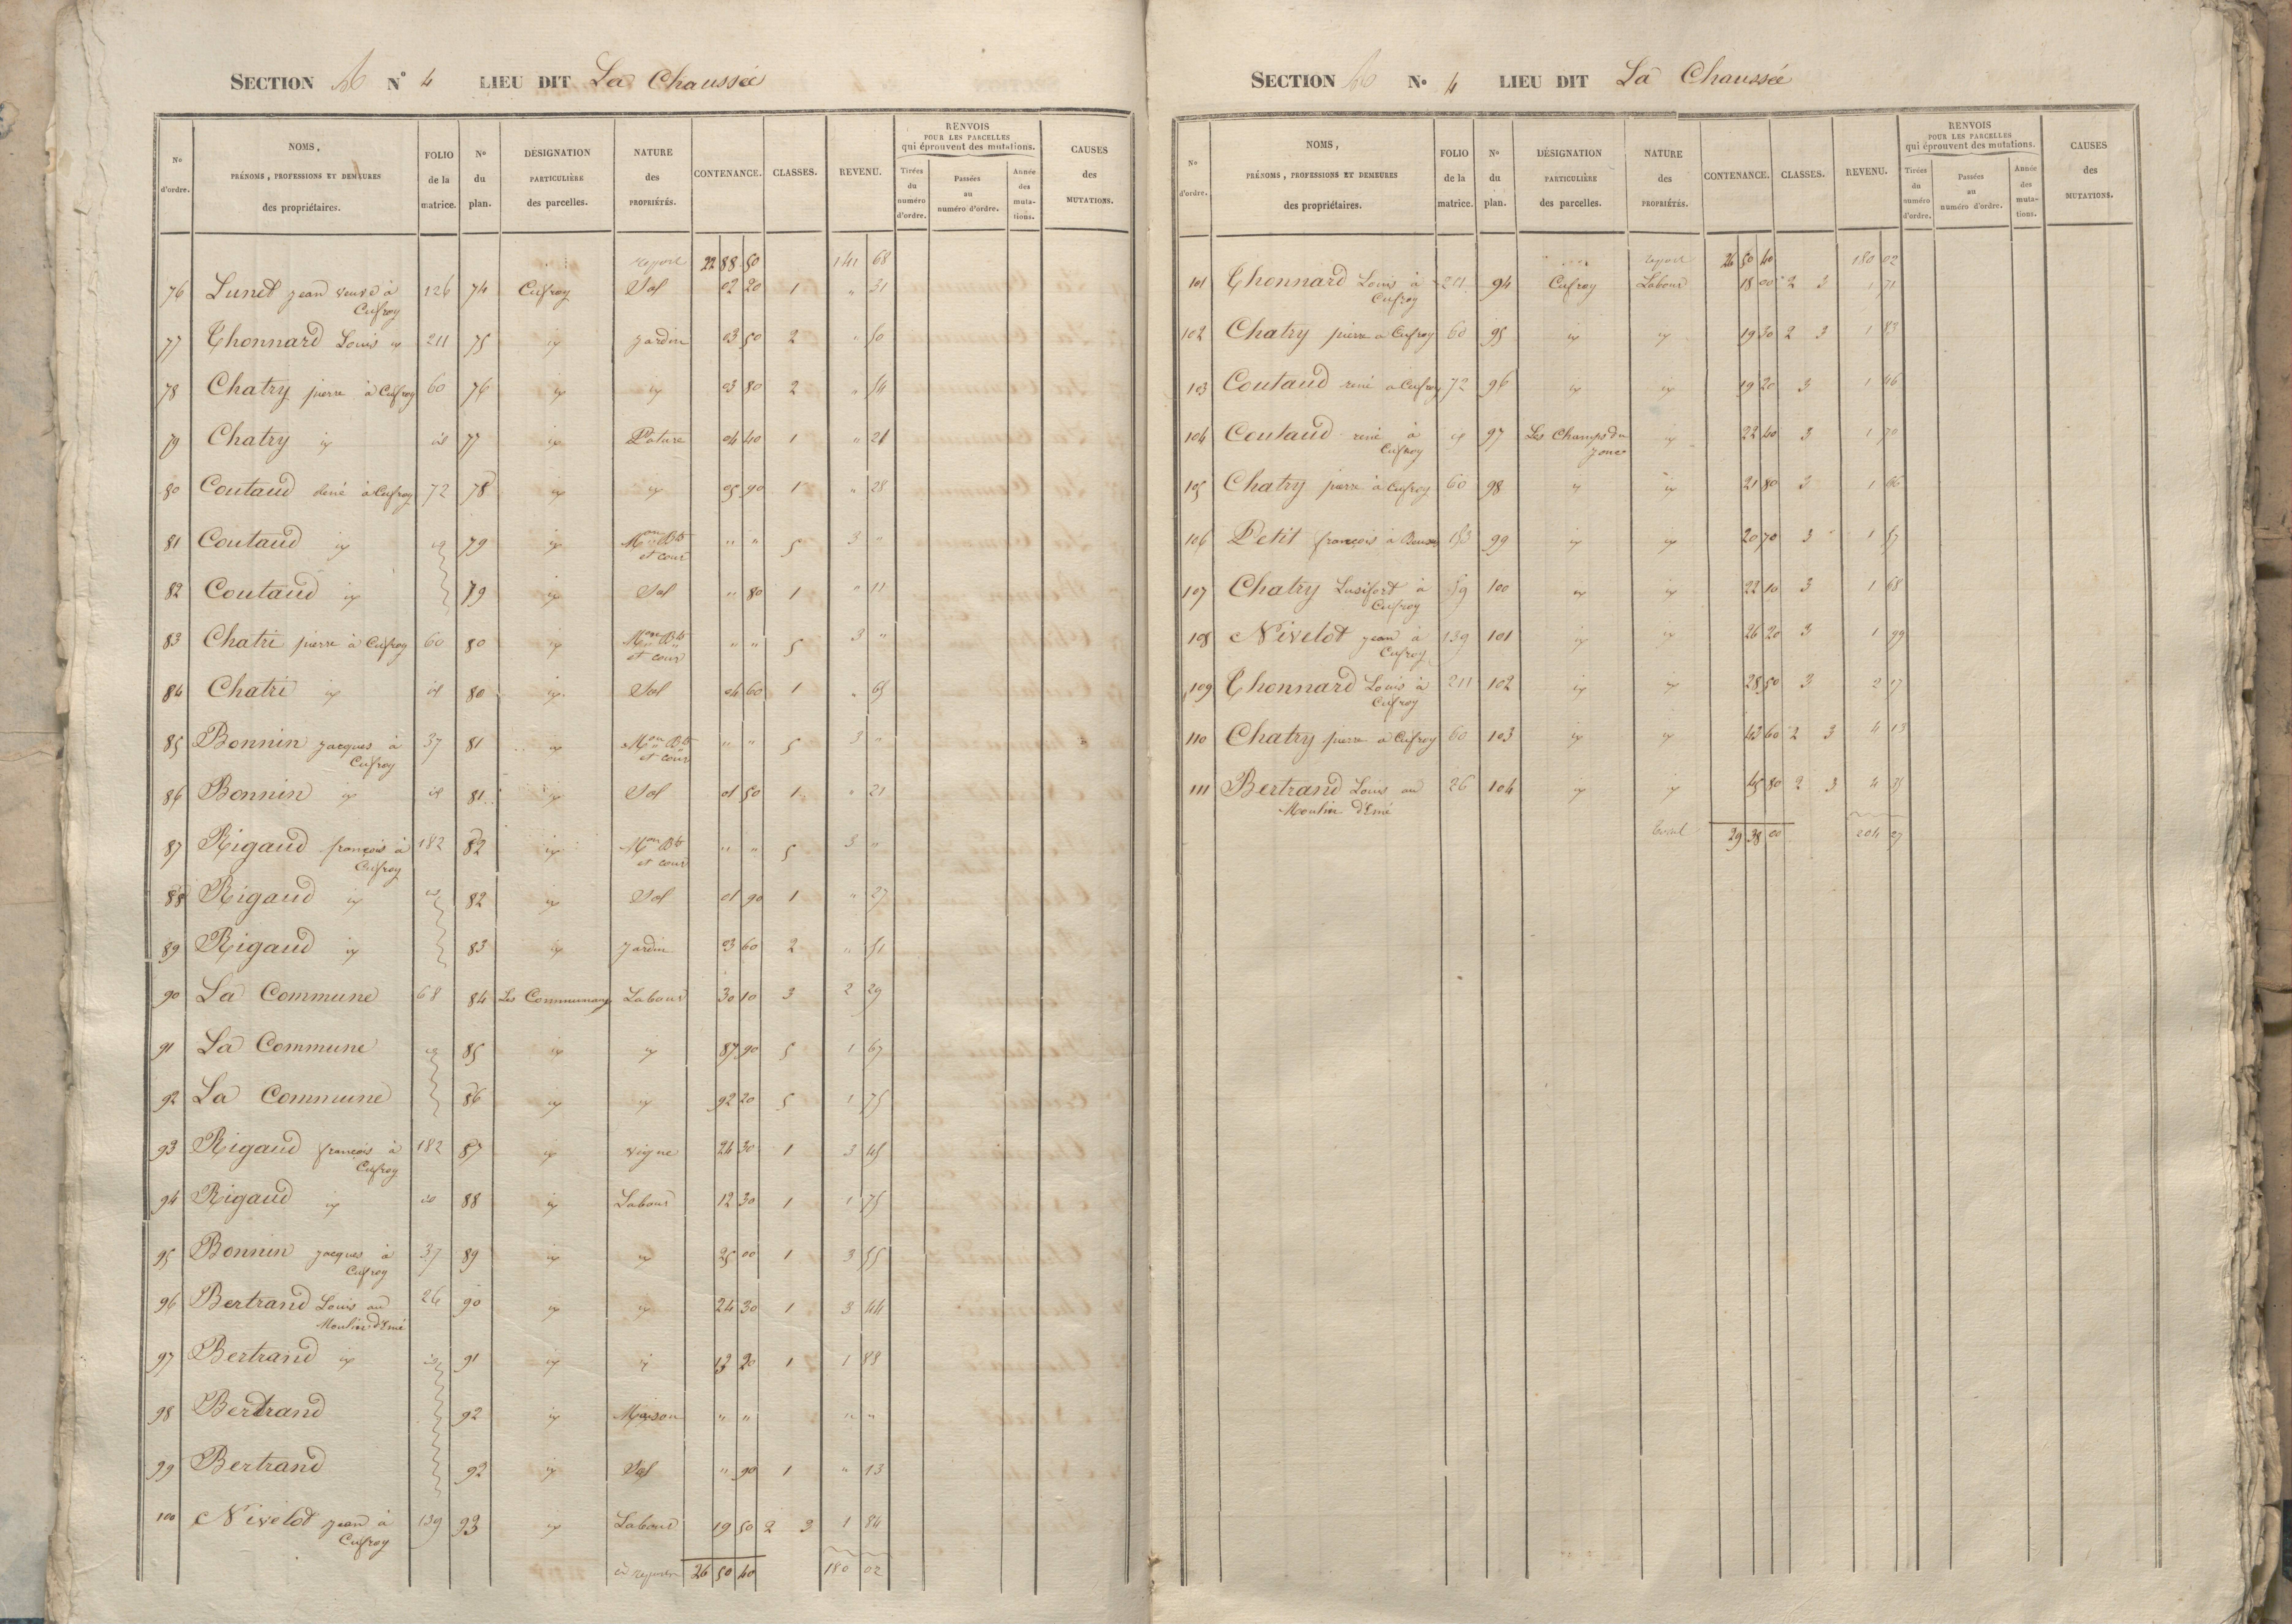 SECTION A N° 4 LIEU DIT La Chaussée
N° d'ordre. NOMS, PRÉNOMS, PROFESSIONS ET DEMEURES des propriétaires. FOLIO de la matrice. N° du plan. DÉSIGNATION PARTICULIÈRE des parcelles. NATURE des PROPRIÉTÉS. CONTENANCE. CLASSES. REVENU. RENVOIS POUR LES PARCELLES qui éprouvent des mutations. Tirées du numéro d'ordre. Passées au numéro d'ordre. Année des mutations. CAUSES des MUTATIONS.
report 22 88 50 141 68
76 Lunet jean veuve à Cufroy 126 74 Cufroy Sol 02 20 1 " 31
77 Thonnard Louis id 211 75 id jardin 03 50 2 " 50
78 Chatry pierre à Cufroy 60 76 id id 03 80 2 " 54
79 Chatry id id 77 id Pature 04 40 1 " 21
80 Coutaud René à Cufroy 72 78 id id 05 90 1 " 28
81 Coutaud id id 79 id Mon Bts et cour " " 5 3 "
82 Coutaud id 79 id Sol " 80 1 " 11
83 Chatri pierre à Cufroy 60 80 id Mon Bts et cour " " 5 3 "
84 Chatri id id 80 id Sol 04 60 1 " 65
85 Bonnin jacques à Cufroy 37 81 id Mon Bts et cour " " 5 3 "
86 Bonnin id id 81 id Sol 01 50 1 " 21
87 Rigaud françois à Cufroy 182 82 id Mon Bts et cour " " 5 3 "
88 Rigaud id id 82 id Sol 01 90 1 " 27
89 Rigaud id 83 id jardin 03 60 2 " 51
90 La Commune 68 84 Les Communaux Labour 30 10 3 2 29
91 La Commune id 85 id id 87 90 5 1 67
92 La Commune 86 id id 92 20 5 1 75
93 Rigaud françois à Cufroy 182 87 id vigne 24 30 1 3 45
94 Rigaud id id 88 id Labour 12 30 1 1 75
95 Bonnin jacques à Cufroy 37 89 id id 25 00 1 3 55
96 Bertrand Louis au Moulin d'Emé 26 90 id id 24 30 1 3 44
97 Bertrand id id 91 id id 13 20 1 1 88
98 Bertrand 92 id Maison " " " "
99 Bertrand 92 id Sol " 90 1 " 13
100 Nivelot jean à Cufroy 139 93 id Labour 19 50 2 3 1 84
à reporter 26 50 40 180 02
SECTION A N° 4 LIEU DIT La Chaussée
N° d'ordre. NOMS, PRÉNOMS, PROFESSIONS ET DEMEURES des propriétaires. FOLIO de la matrice. N° du plan. DÉSIGNATION PARTICULIÈRE des parcelles. NATURE des PROPRIÉTÉS. CONTENANCE. CLASSES. REVENU. RENVOIS POUR LES PARCELLES qui éprouvent des mutations. Tirées du numéro d'ordre. Passées au numéro d'ordre. Année des mutations. CAUSES des MUTATIONS.
report 26 50 40 180 02
101 Thonnard Louis à Cufroy 211 94 Cufroy Labour 18 00 2 3 1 71
102 Chatry pierre à Cufroy 60 95 id id 19 30 2 3 1 83
103 Coutaud rené à Cufroy 72 96 id id 19 20 3 1 46
104 Coutaud rené à Cufroy id 97 Les Champs du jonc id 22 40 3 1 70
105 Chatry pierre à Cufroy 60 98 id id 21 80 3 1 66
106 Petit françois à 153 99 id id 20 70 3 1 57
107 Chatry Lusifort à Cufroy 59 100 id id 22 10 3 1 68
108 Nivelot jean à Cufroy 139 101 id id 26 20 3 1 99
109 Thonnard Louis à Cufroy 211 102 id id 28 50 3 2 17
110 Chatry pierre à Cufroy 60 103 id id 43 60 2 3 4 13
111 Bertrand Louis au Moulin d'Emé 26 104 id id 45 80 2 3 4 35
total 29 38 00 204 27